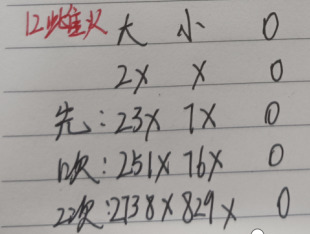 大 小 0
2x x 0
先:23x 7x 0
次:251x 76x 0
22次:2738x 829x 0